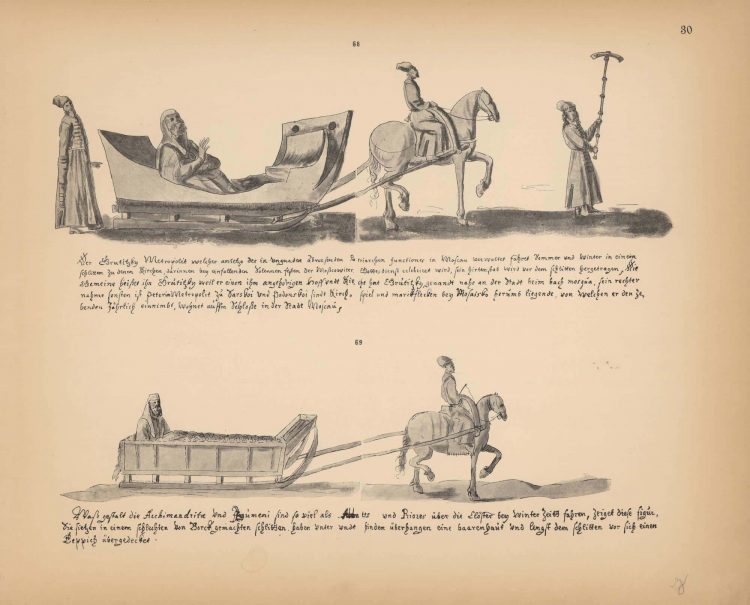 30
68
Der Crutitzky Metropolit welcher anietzo des in ungnaden Abwesenden Patriarchen functiones in Moscau verwaltet fähret Sommer und Winter in einem
schlitten zu denen Kirchen, darinnen bey einfallenden Solennen festen der Moscowiter Gottesdienst celebriret wird, sein hirtenstab wird vor dem schlitten hergetragen, Die
Gemeine heisset ihn Crutitzky weil er einen ihm angehörigen hoff undt Kirche hat Crutitzky genandt nahe an der Stadt beim bach mosqua, sein rechter
nahme sonsten ist Metropolit zu Sarskoi und Podonskoi sindt Kirchspiel und marcktflecken bey Mosaisko herumb liegende, von welchen er den Ze
henden Jährlich einnimbt, wohnet auffm Schlosse in der Stadt Moscau,
69
Wass gestalt die Archimandriten und Igumeni sind so viel als und Priores über die Clöster bey winter Zeitt fahren, zeiget diese figur,
die sitzen in einem schlechten von Borck gemachten schlitten haben unter undt hinden überhangen eine baarenhaut und lengst dem schlitten vor sich einen
Teppich übergedecket.